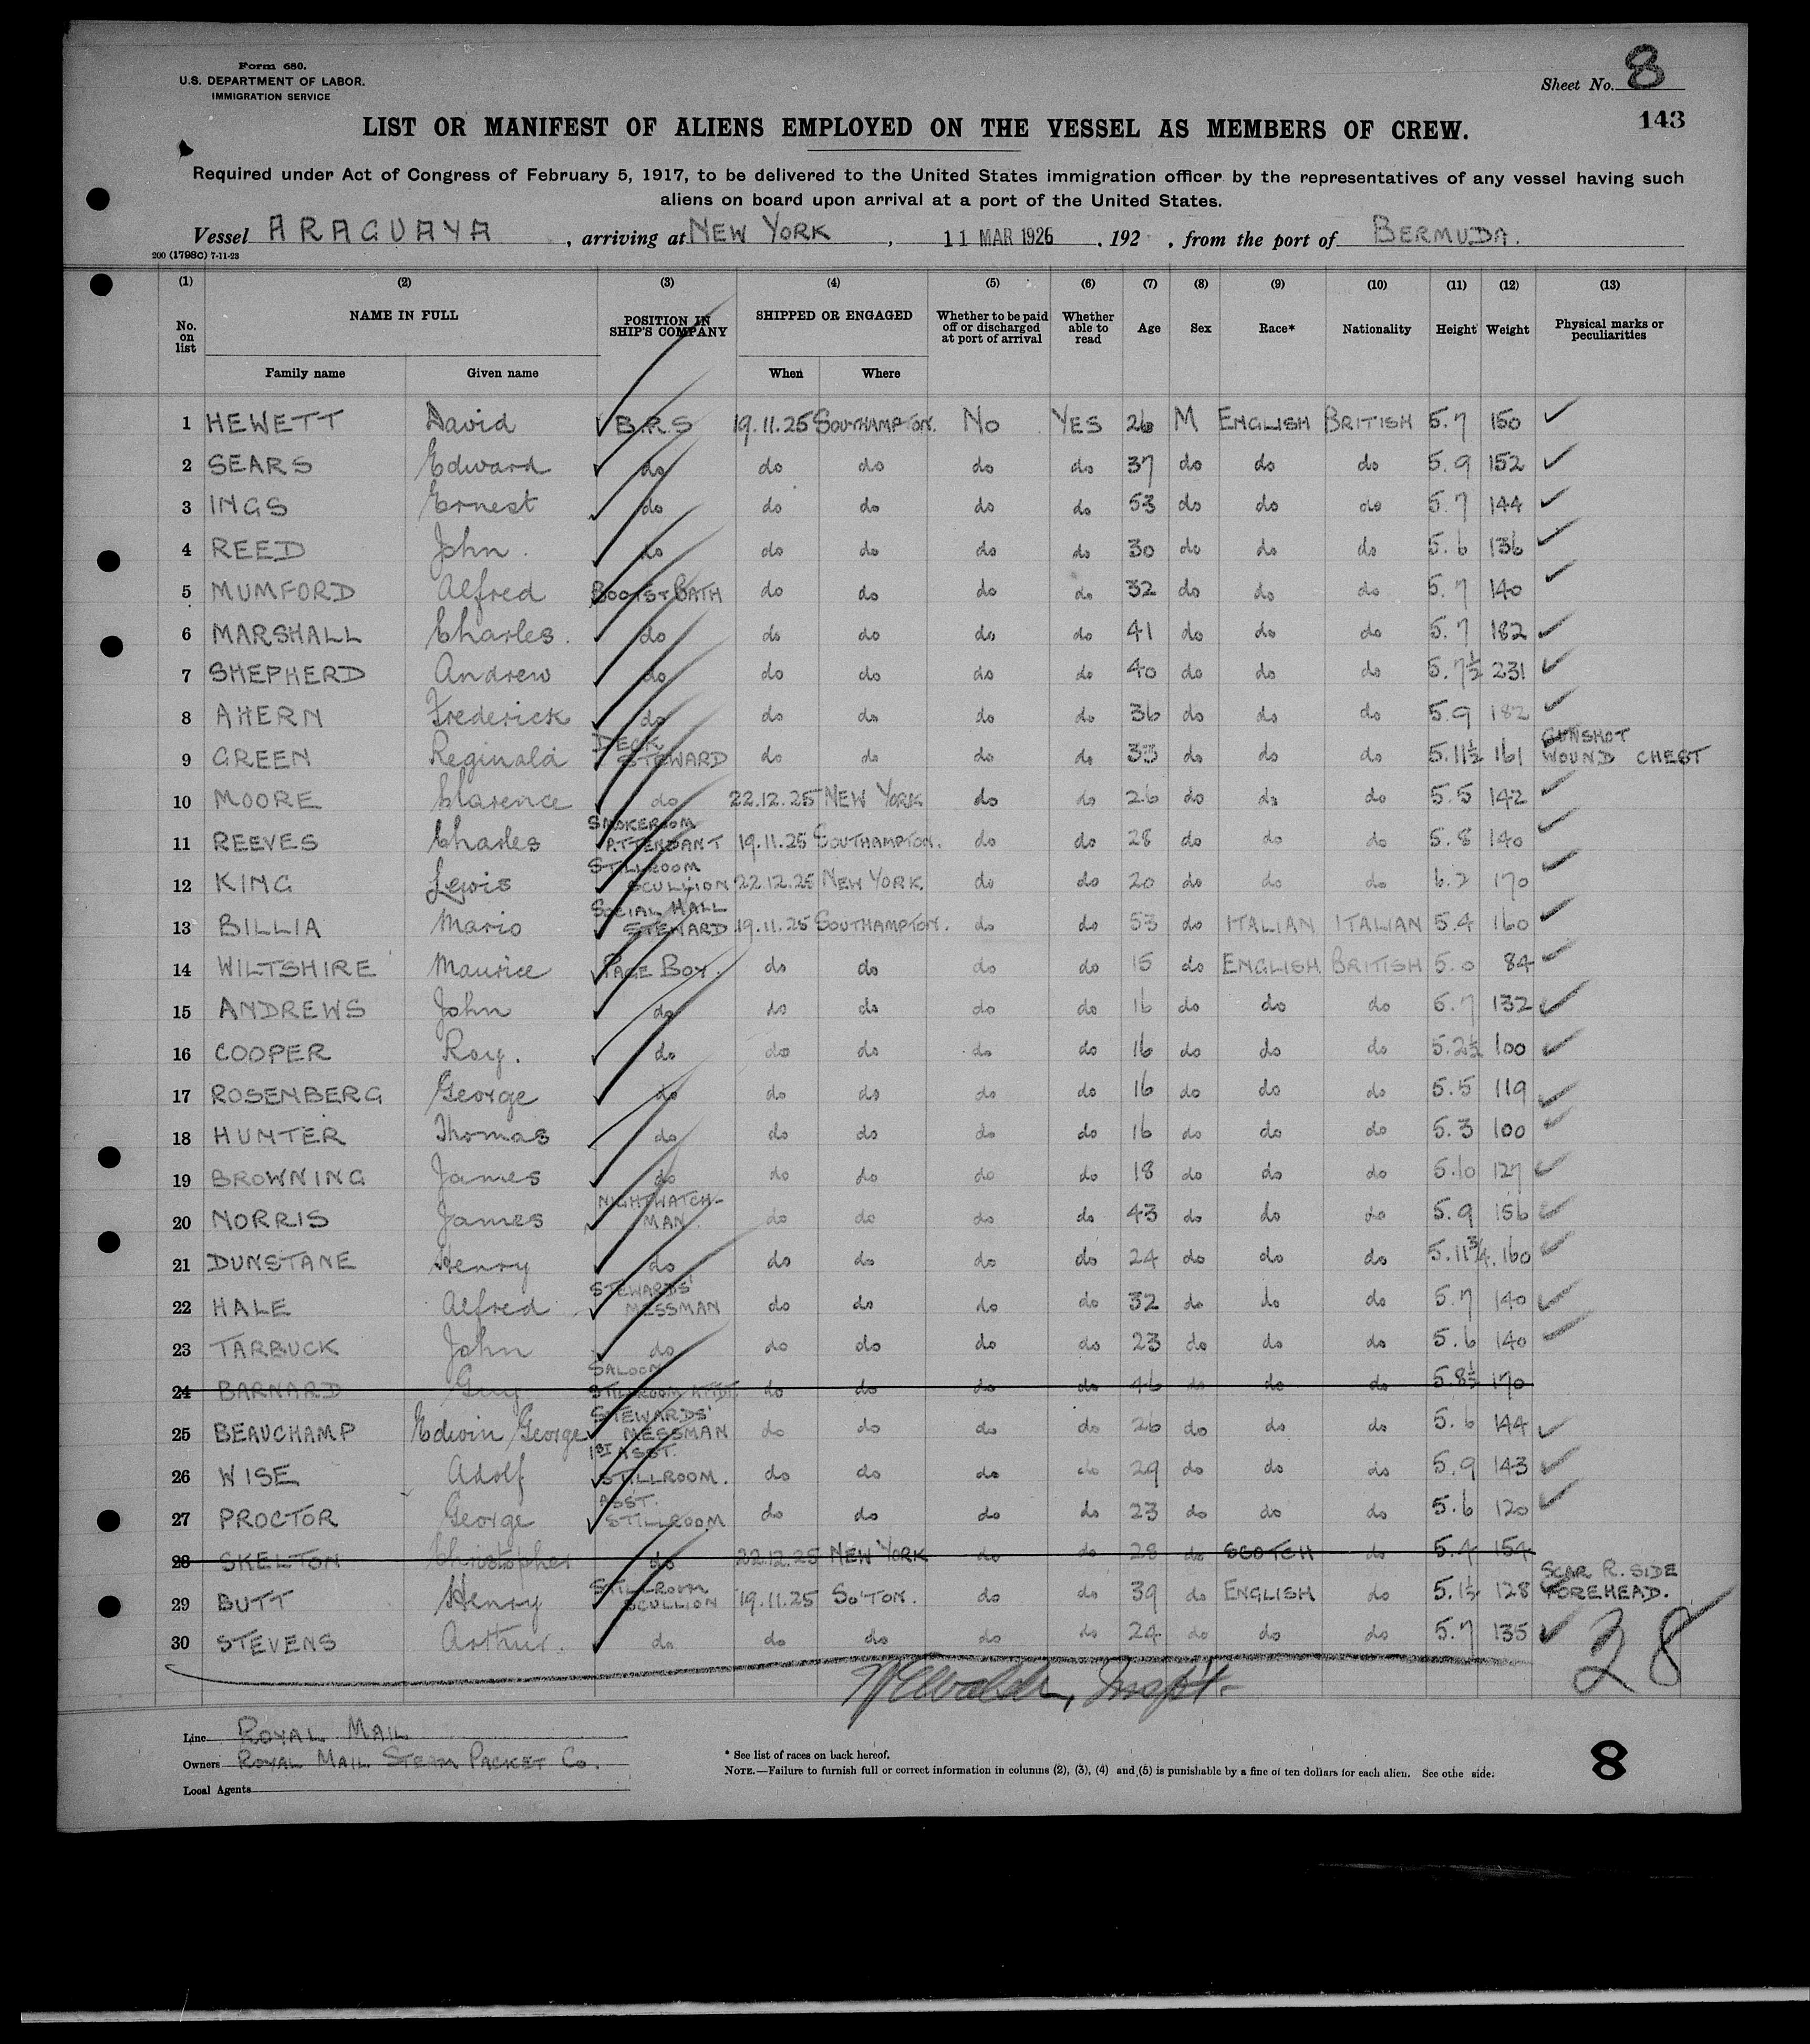 Form 680.
U.S. DEPARTMENT OF LABOR.
IMMIGRATION SERVICE
Sheet No. 8
143
LIST OR MANIFEST OF ALIENS EMPLOYED ON THE VESSEL AS MEMBERS OF CREW.
Required under Act of Congress of February 5, 1917, to be delivered to the United States immigration officer by the representatives of any vessel having such
aliens on board upon arrival at a port of the United States.
Vessel ARAGUAYA, arriving at NEW YORK, 11 MAR 1926, 192 , from the port of BERMUDA.
200 (1798C) 7-11-23
(1) (2) (3) (4) (5) (6) (7) (8) (9) (10) (11) (12) (13)
No. on list NAME IN FULL POSITION IN SHIP'S COMPANY SHIPPED OR ENGAGED Whether to be paid off or discharged at port of arrival Whether able to read Age Sex Race* Nationality Height Weight Physical marks or peculiarities
Family name Given name When Where
1 HEWETT David B.R.S 19.11.25 SOUTHAMPTON. NO YES 26 M ENGLISH BRITISH 5.7 150
2 SEARS Edward do do do do do 37 do do do 5.9 152
3 INGS Ernest do do do do do 53 do do do 5.7 144
4 REED John. do do do do do 30 do do do 5.6 136
5 MUMFORD Alfred BOOTS+BATH do do do do 32 do do do 5.7 140
6 MARSHALL Charles. do do do do do 41 do do do 5.7 182
7 SHEPHERD Andrew do do do do do 40 do do do 5.7½ 231
8 AHERN Frederick do do do do do 36 do do do 5.9 182
9 GREEN Reginald DECK STEWARD do do do do 33 do do do 5.11½ 161 GUNSHOT WOUND CHEST
10 MOORE Clarence do 22.12.25 NEW YORK do do 26 do do do 5.5 142
11 REEVES Charles SMOKEROOM ATTENDANT 19.11.25 SOUTHAMPTON. do do 28 do do do 5.8 140
12 KING Lewis STILLROOM SCULLION 22.12.25 NEW YORK. do do 20 do do do 6.2 170
13 BILLIA Mario SOCIAL HALL STEWARD 19.11.25 SOUTHAMPTON. do do 53 do ITALIAN ITALIAN 5.4 160
14 WILTSHIRE Maurice PAGE BOY. do do do do 15 do ENGLISH BRITISH 5.0 84
15 ANDREWS John do do do do do 16 do do do 5.7 132
16 COOPER Roy. do do do do do 16 do do do 5.2½ 100
17 ROSENBERG George do do do do do 16 do do do 5.5 119
18 HUNTER Thomas do do do do do 16 do do do 5.3 100
19 BROWNING James do do do do do 18 do do do 5.10 127
20 NORRIS James NIGHTWATCH-MAN. do do do do 43 do do do 5.9 156
21 DUNSTANE Henry do do do do do 24 do do do 5.11¾. 160
22 HALE Alfred STEWARDS' MESSMAN do do do do 32 do do do 5.7 140
23 TARBUCK John do do do do do 23 do do do 5.6 140
24 BARNARD Guy SALOON STILLROOM ATTDT. do do do do 46 do do do 5.8½ 170
25 BEAUCHAMP Edwin George STEWARDS' MESSMAN do do do do 26 do do do 5.6 144
26 WISE Adolf 1ST ASST. STILLROOM. do do do do 29 do do do 5.9 143
27 PROCTOR George ASST. STILLROOM do do do do 23 do do do 5.6 120
28 SKELTON Christopher do 22.12.25 NEW YORK do do 28 do SCOTCH do 5.4 154
29 BUTT Henry STILLROOM SCULLION 19.11.25 SO'TON. do do 39 do ENGLISH do 5.1½ 128 SCAR R. SIDE FOREHEAD.
30 STEVENS Arthur. do do do do do 24 do do do 5.7 135
28
Insp't.
Line ROYAL MAIL
Owners ROYAL MAIL STEAM PACKET CO.
Local Agents
* See list of races on back hereof.
NOTE.—Failure to furnish full or correct information in columns (2), (3), (4) and (5) is punishable by a fine of ten dollars for each alien. See othe side.
8